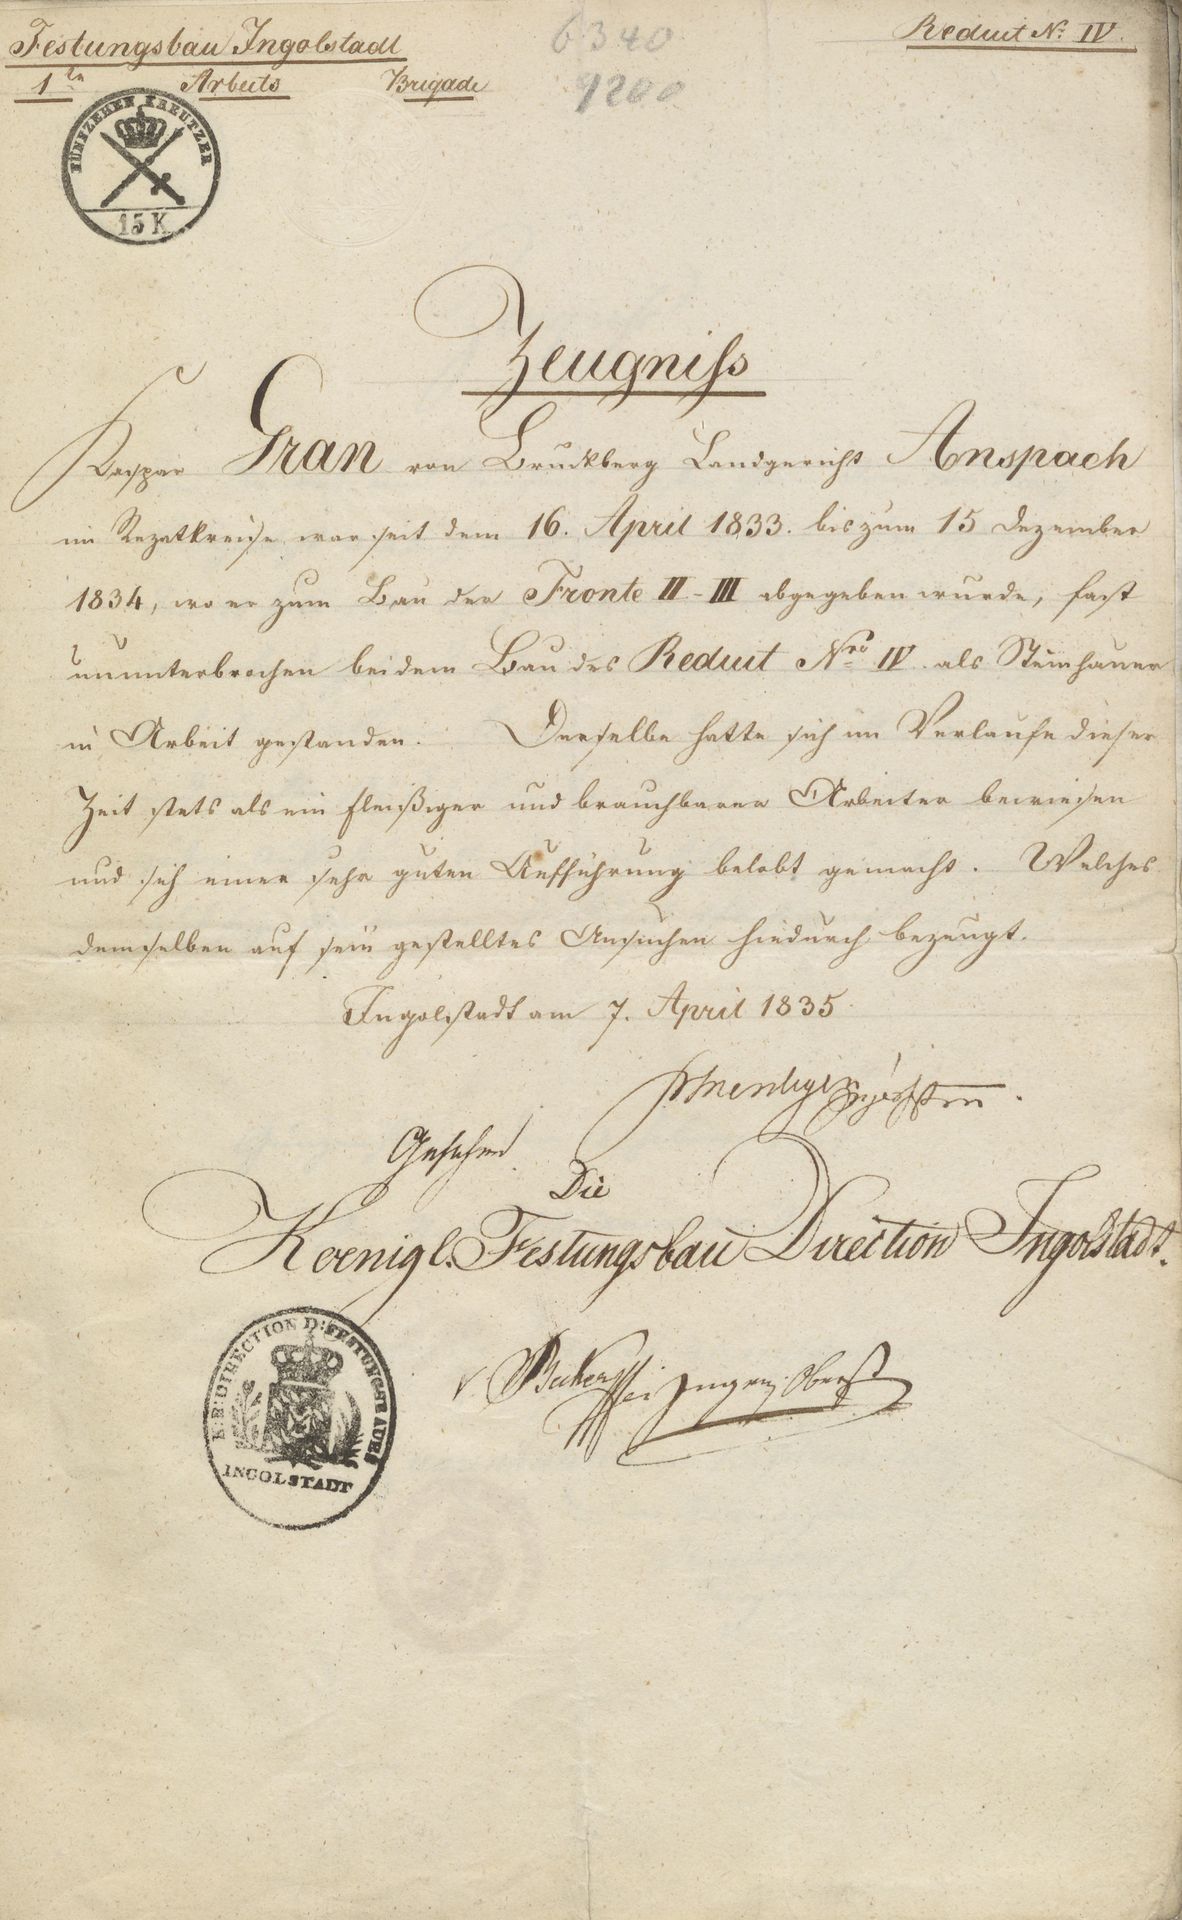 Festungsbau Ingolstadt
6340
Reduit No. IV.
1te Arbeits Brigade
9200
FÜNFZEHEN KREUTZER
15 K
Zeugniss
Kaspar Gran von Bruckberg Landgerichts Anspach
im Rezatkreise war seit dem 16. April 1833. bis zum 15 Dezember
1834, wo er zum Bau der Fronte II-III abgegeben wurde, fast
ununterbrochen bei dem Bau des Reduit Nro IV. als Steinhauer
in Arbeit gestanden. Derselbe hatte sich im Verlaufe dieser
Zeit stets als ein fleißiger und brauchbarer Arbeiter bewiesen
und sich einer sehr guten Aufführung belobt gemacht. Welches
demselben auf sein gestelltes Ansuchen hiedurch bezeugt.
Ingolstadt am 7. April 1835
Gesehen
Die
Koenigl. Festungsbau Direction Ingolstadt.
K: B: DIRECTION D: FESTUNGSBAUES
INGOLSTADT
v Becker Ingen. Oberst